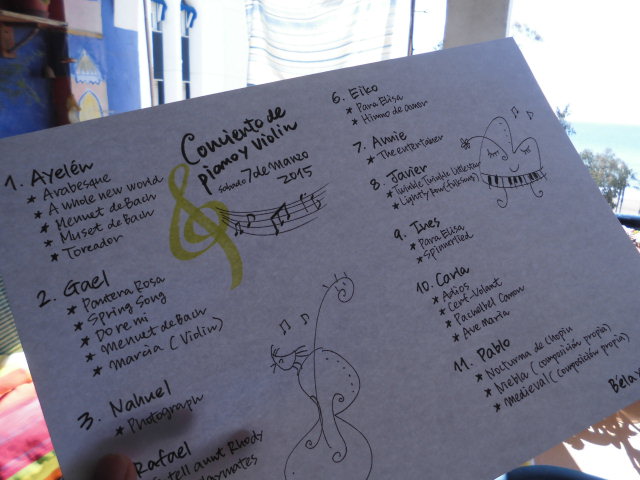 Concierto de
piano y violin
sábado 7 de marzo
2015
1. Ayelén
* Arabesque
* A whole new world
* Menuet de Bach
* Muset de Bach
* Toreador
2. Gael
* Pantera Rosa
* Spring Song
* Do re mi
* Menuet de Bach
* Marcia (Violin)
3. Nahuel
* Photograph
Rafael
tell aunt Rhody
6. Eiko
* Para Elisa
* Himno de amor
7. Annie
* The entertainer
8. Javier
* Twinkle Twinkle little star
* Lightly Row (folksong)
9. Ines
* Para Elisa
* Spinnerlied
10. Carla
* Adios
* Cerf-Volant
* Pachelbel Canon
* Ave maria
11. Pablo
* Nocturma de Chopin
* Niebla (composición propia)
* Medieval (composición propia)
Bela